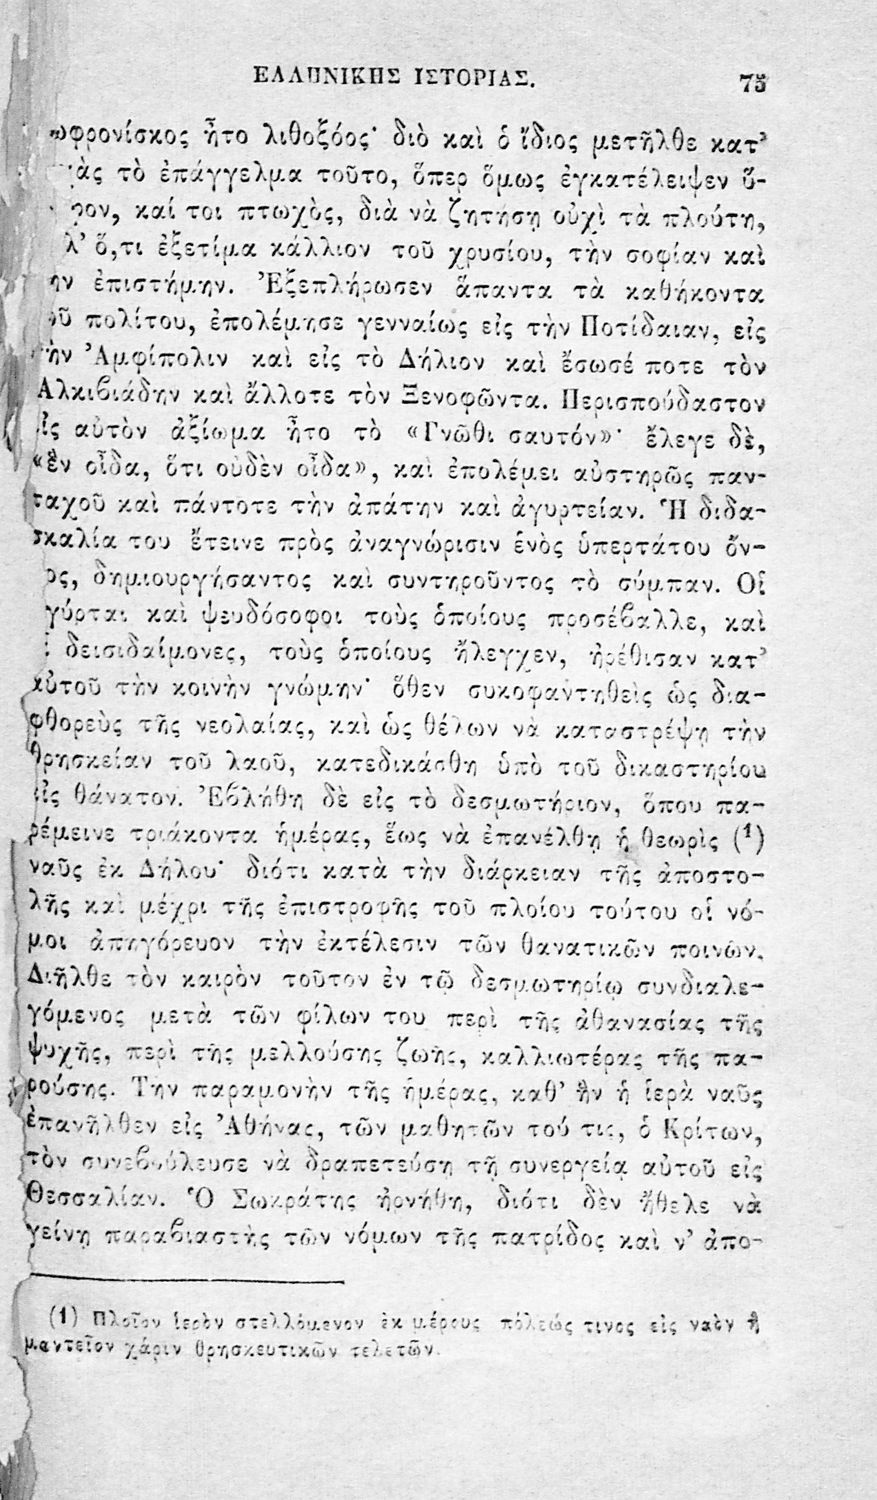 ΕΛΛΗΝΙΚΗΣ ΙΣΤΟΡΙΑΣ. 75
ωφρονίσκος ἦτο λιθοξόος· διὸ καὶ ὁ ἴδιος μετῆλθε κατ’
ὰς τὸ ἐπάγγελμα τοῦτο, ὅπερ ὅμως ἐγκατέλειψεν ὕ-
ρον, καί τοι πτωχὸς, διὰ νὰ ζητήσῃ οὐχὶ τὰ πλούτη,
λ’ ὅ,τι ἐξετίμα κάλλιον τοῦ χρυσίου, τὴν σοφίαν καὶ
ην ἐπιστήμην. Ἐξεπλήρωσεν ἅπαντα τὰ καθήκοντα
οῦ πολίτου, ἐπολέμησε γενναίως εἰς τὴν Ποτίδαιαν, εἰς
τὴν Ἀμφίπολιν καὶ εἰς τὸ Δήλιον καὶ ἔσωσέ ποτε τὸν
Ἀλκιβιάδην καὶ ἄλλοτε τὸν Ξενοφῶντα. Περισπούδαστον
εἰς αὐτὸν ἀξίωμα ἦτο τὸ «Γνῶθι σαυτόν»· ἔλεγε δὲ,
«ἓν οἶδα, ὅτι οὐδὲν οἶδα», καὶ ἐπολέμει αὐστηρῶς παν-
ταχοῦ καὶ πάντοτε τὴν ἀπάτην καὶ ἀγυρτείαν. Ἡ διδα-
σκαλία του ἔτεινε πρὸς ἀναγνώρισιν ἑνὸς ὑπερτάτου ὄν-
ος, δημιουργήσαντος καὶ συντηροῦντος τὸ σύμπαν. Οἱ
γύρται καὶ ψευδόσοφοι τοὺς ὁποίους προσέβαλλε, καὶ
ἱ δεισιδαίμονες, τοὺς ὁποίους ἤλεγχεν, ἠρέθισαν κατ’
αὐτοῦ τὴν κοινὴν γνώμην· ὅθεν συκοφαντηθεὶς ὡς δια-
φθορεὺς τῆς νεολαίας, καὶ ὡς θέλων νὰ καταστρέψῃ τὴν
θρησκείαν τοῦ λαοῦ, κατεδικάσθη ὑπὸ τοῦ δικαστηρίου
εἰς θάνατον. Ἐβλήθη δὲ εἰς τὸ δεσμωτήριον, ὅπου πα-
ρέμεινε τριάκοντα ἡμέρας, ἕως νὰ ἐπανέλθῃ ἡ θεωρὶς (1)
ναῦς ἐκ Δήλου· διότι κατὰ τὴν διάρκειαν τῆς ἀποστο-
λῆς καὶ μέχρι τῆς ἐπιστροφῆς τοῦ πλοίου τούτου οἱ νό-
μοι ἀπηγόρευον τὴν ἐκτέλεσιν τῶν θανατικῶν ποινῶν.
Διῆλθε τὸν καιρὸν τοῦτον ἐν τῷ δεσμωτηρίῳ συνδιαλε-
γόμενος μετὰ τῶν φίλων του περὶ τῆς ἀθανασίας τῆς
ψυχῆς, περὶ τῆς μελλούσης ζωῆς, καλλιωτέρας τῆς πα-
ρούσης. Τὴν παραμονὴν τῆς ἡμέρας, καθ’ ἣν ἡ ἱερὰ ναῦς
ἐπανῆλθεν εἰς Ἀθήνας, τῶν μαθητῶν τού τις, ὁ Κρίτων,
τὸν συνεβούλευσε νὰ δραπετεύσῃ τῇ συνεργείᾳ αὐτοῦ εἰς
Θεσσαλίαν. Ὁ Σωκράτης ἠρνήθη, διότι δὲν ἤθελε νὰ
γείνῃ παραβιαστὴς τῶν νόμων τῆς πατρίδος καὶ ν’ ἀπο-
(1) Πλοῖον ἱερὸν στελλόμενον ἐκ μέρους πόλεώς τινος εἰς ναὸν ἢ
μαντεῖον χάριν θρησκευτικῶν τελετῶν.